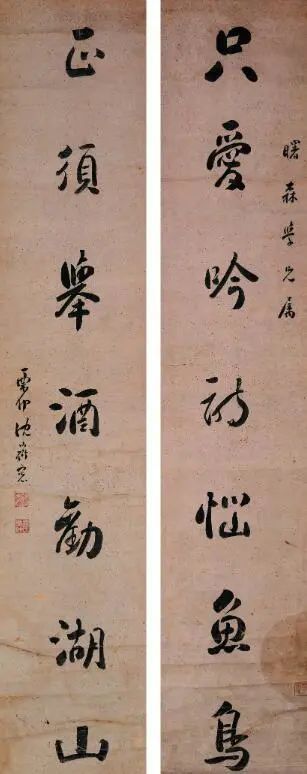 曙森學兄屬
只愛吟詩惱魚鳥
正須舉酒勸湖山
栗仲沈道寬